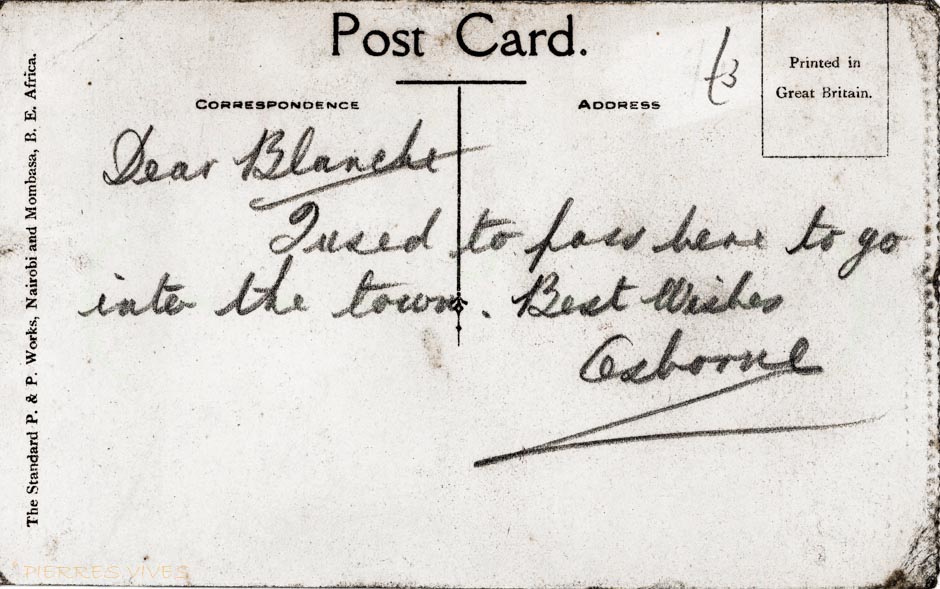 Post Card.
CORRESPONDENCE
ADDRESS
Printed in
Great Britain.
The Standard P. & P. Works, Nairobi and Mombasa, B. E. Africa.
Dear Blanche
I used to pass here to go
into the town. Best Wishes
Osborne
PIERRES VIVES